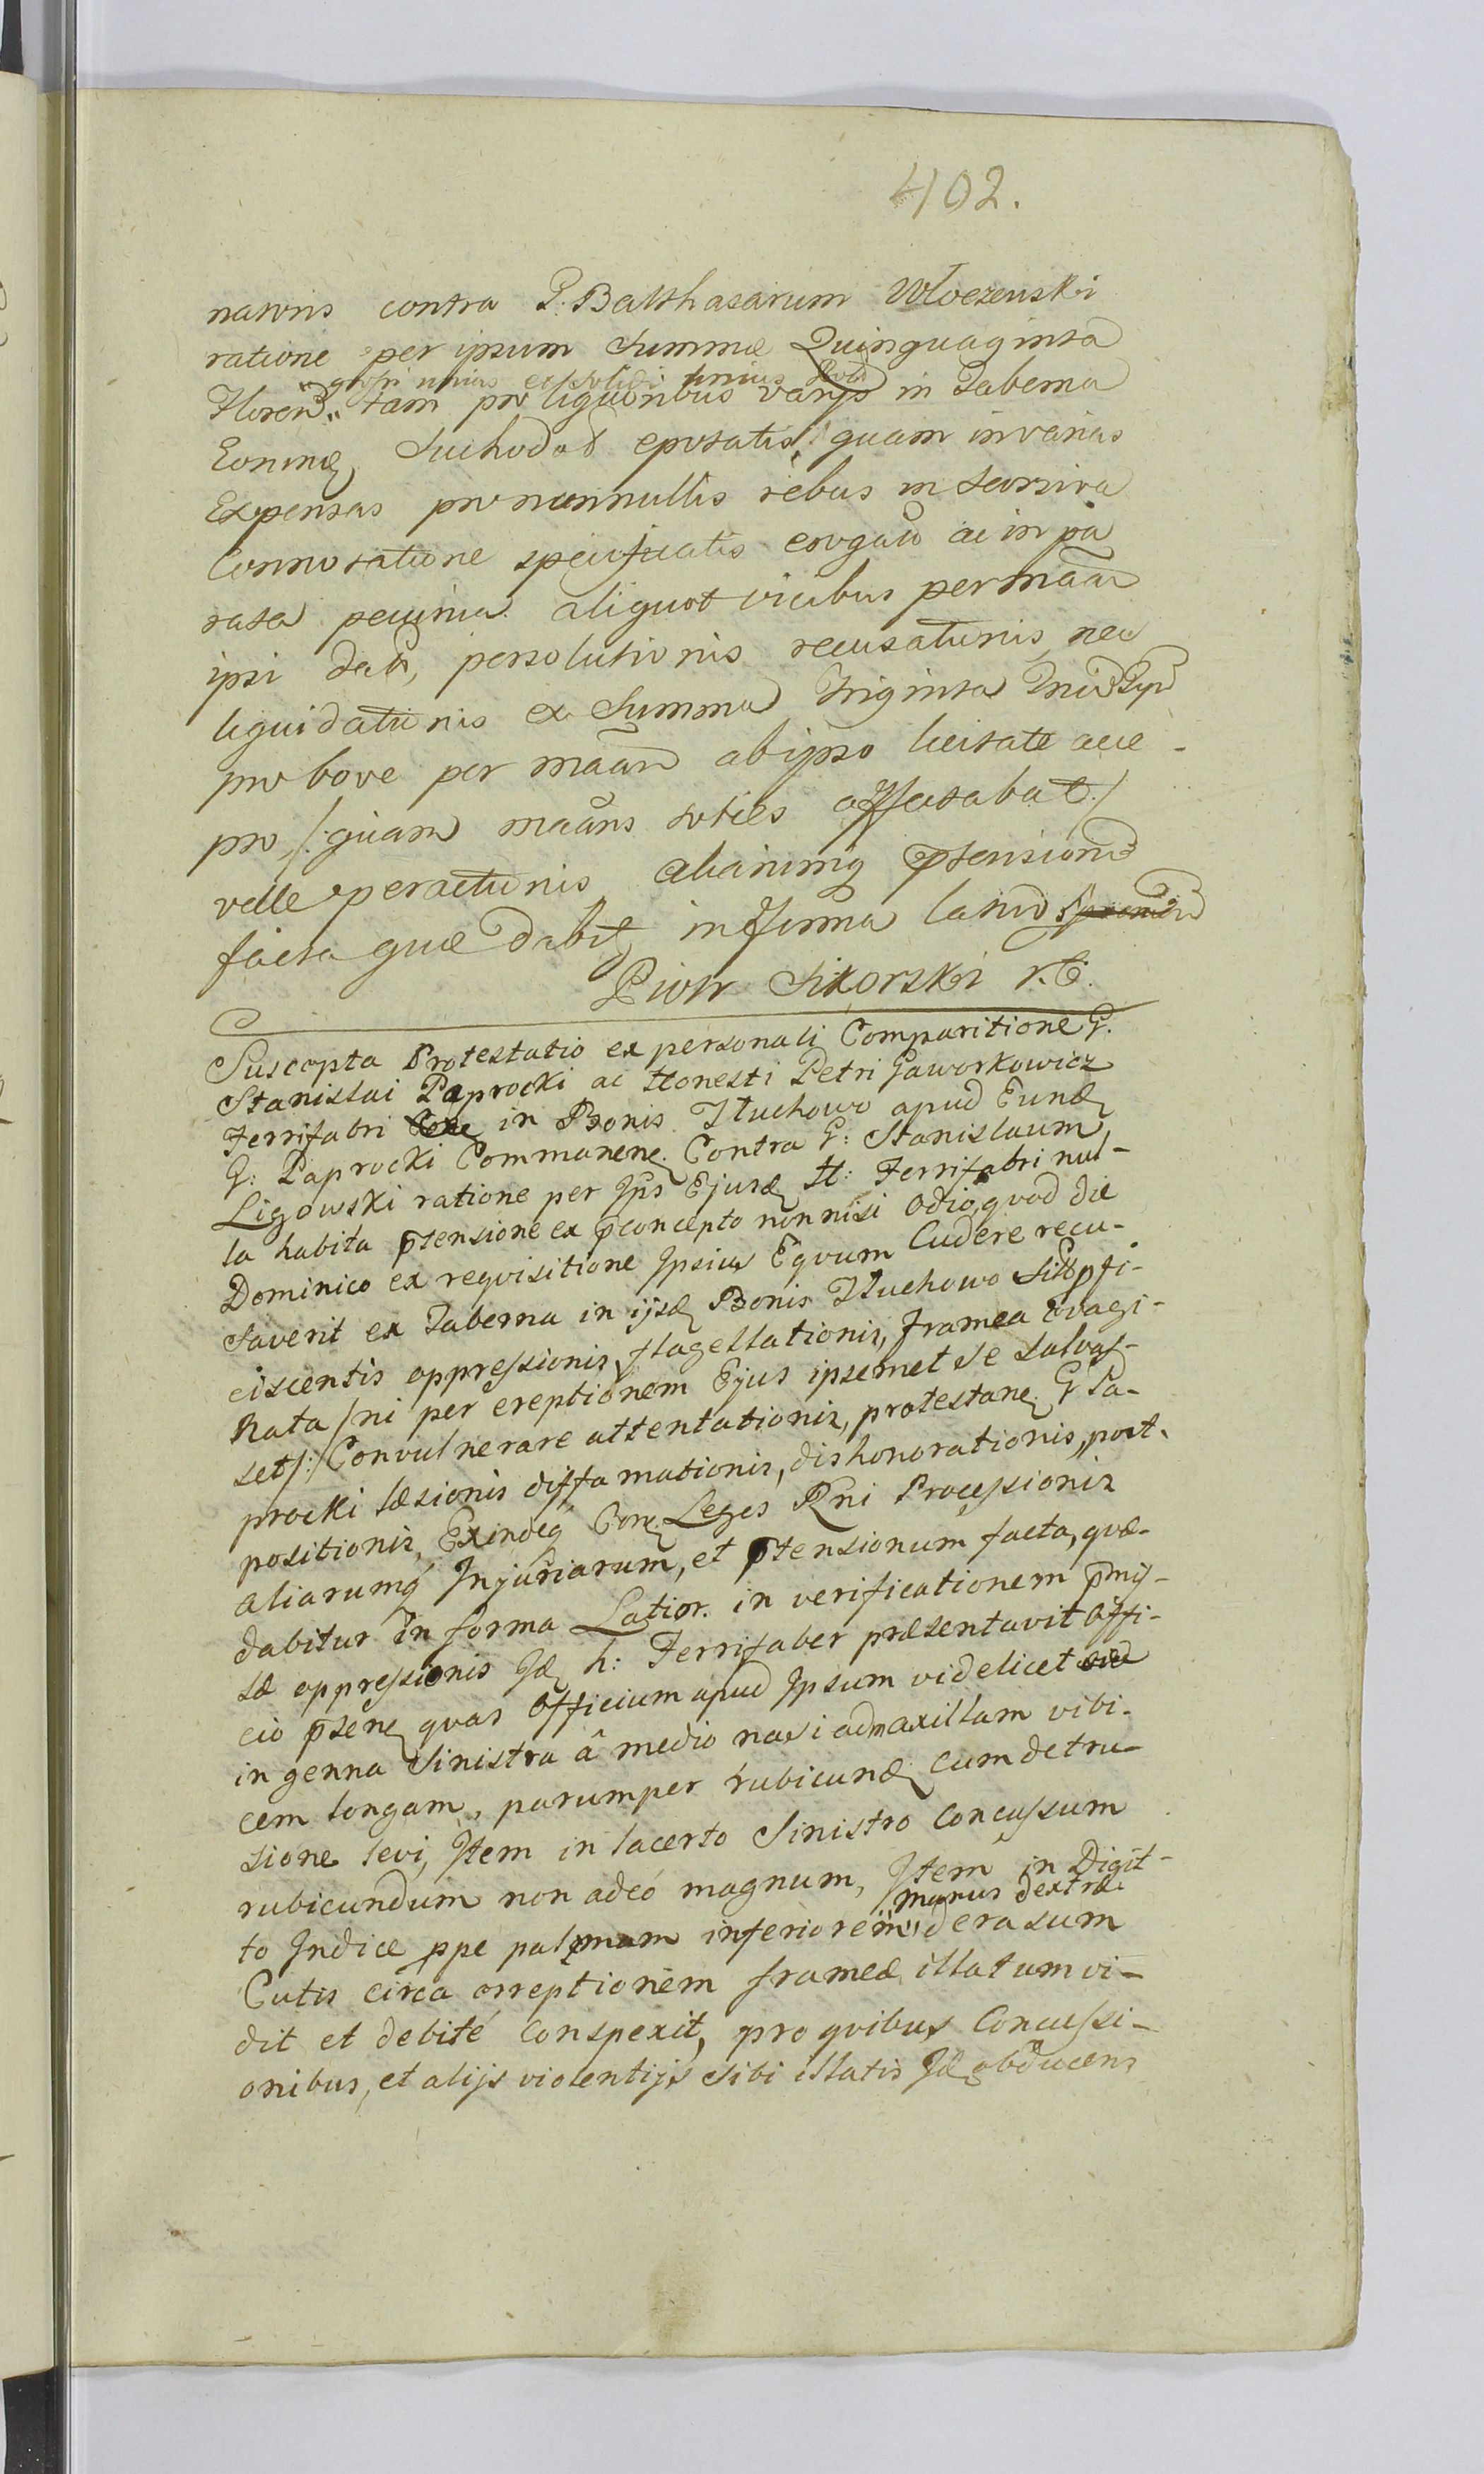 402.
nationis contra G. Balthasarum Włoczewski
ratione per ipsum Summæ Quinquaginta
grossi unius et solidi unius
Floren. tam pro liquoribus varijs in Taberna
Suchodoł epotatis, quam in varias
Expensas pro nonnullis rebus in seorsiva
Connotatione specificatis erogatæ ac in pa
rata pecunia aliquot vicibus per
ipsi persolutionis recusationis, nec
liquidationis ex Summa Triginta
pro bove per ab ipso licitate acce-
pro /: quam toties affectabat :/
velle peractionis aliarumq ptensionū
facta quæ dabit in forma
Piotr Sikorski
Suscepta Protestatio ex personali Comparitione G.
Stanislai Paprocki ac Honesti Petri Gaworkowicz
Ferrifabri in Bonis Tłuchowo apud Eund
G: Paprocki Commanen Contra G: Stanislaum
Ligowski ratione per Ips Ejusd H: Ferrifabri nul-
la habita ptensione ex pconcepto non nisi odio, qvod die
Dominico ex reqvisitione Ipsius Eqvum Cudere recu-
saverit ex Taberna in ijsd Bonis Tłuchowo
ciscentis oppressionis flagellationis, framea evagi-
nata /ni per ereptionem Ejus ipsemet se salvas-
set/: Convulnerare attentationis, protestane G Pa-
procki læsionis diffamationis, dishonorationis, post-
positionis, Exindeq Con Leges Rni Processionis
aliarumq Injuriarum, et ptensionum facta, qvæ-
dabitur in forma Latior. in verificationem pmis-
sæ oppressionis Id h: Ferrifaber præsentavit offi-
cio psene qvas Officium apud Ipsum videlicet
in genna Sinistra â medio nasi ad maxillam vibi-
cem longam, parumper rubicund cum detru-
sione levi, Item in lacerto Sinistro Concussum
rubicundum non adeó magnum, Item in Digit-
manus dextræ
to Indice ppe palmam inferiorem derasum
Cutis circa orreptionem frameæ illatum vi-
dit et debité Conspexit, pro qvibus Concussi-
onibus, et alijs violentijs sibi illatis Id abducens